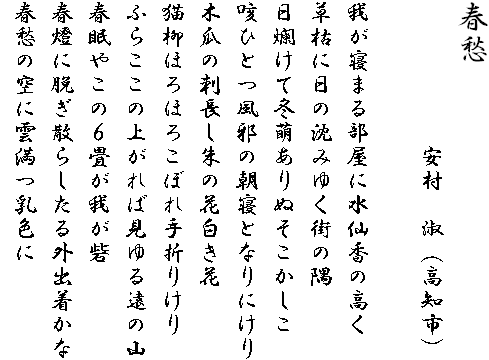 春愁
安村 淑(高知市)
我が寝まる部屋に水仙香の高く
草枯に日の沈みゆく街の隅
日爛けて冬萌ありぬそこかしこ
咳ひとつ風邪の朝寝となりにけり
木瓜の刺長し朱の花白き花
猫柳ほろほろこぼれ手折りけり
ふらここの上がれば見ゆる遠の山
春眠やこの6畳が我が砦
春燈に脱ぎ散らしたる外出着かな
春愁の空に雲満つ乳色に